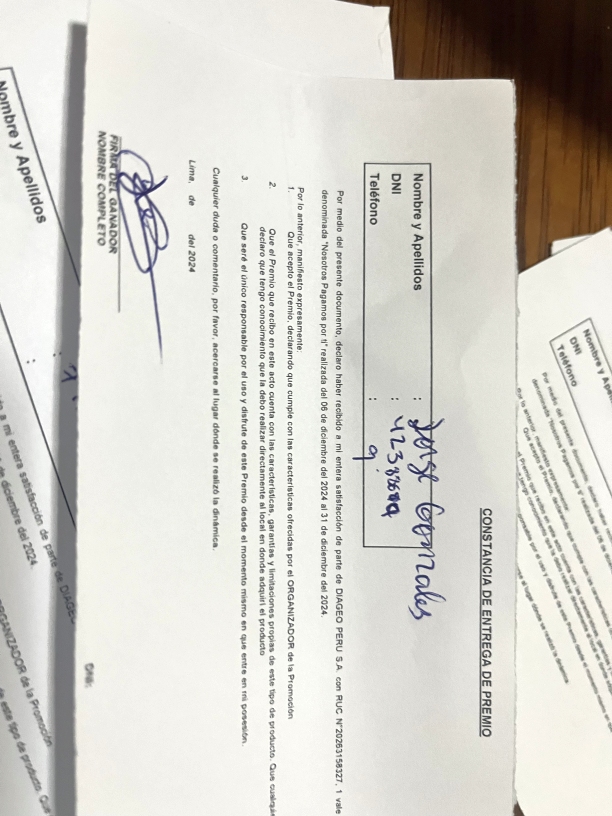 CONSTANCIA DE ENTREGA DE PREMIO
Nombre y Apellidos : Jorge Gonzales
DNI :
Teléfono : 9
Por medio del presente documento, declaro haber recibido a mi entera satisfacción de parte de DIAGEO PERU S.A. con RUC N°20263158327, 1 vale
denominada "Nosotros Pagamos por ti" realizada del 06 de diciembre del 2024 al 31 de diciembre del 2024.
Por lo anterior, manifiesto expresamente:
1. Que acepto el Premio, declarando que cumple con las características ofrecidas por el ORGANIZADOR de la Promoción
2. Que el Premio que recibo en este acto cuenta con las características, garantías y limitaciones propias de este tipo de producto. Que cualqui
declaro que tengo conocimiento que la debo realizar directamente al local en donde adquirí el producto
3. Que seré el único responsable por el uso y disfrute de este Premio desde el momento mismo en que entre en mi posesión.
Cualquier duda o comentario, por favor, acercarse al lugar dónde se realizó la dinámica.
Lima, de del 2024
FIRMA DEL GANADOR
NOMBRE COMPLETO
DNI:
Nombre y Apellidos
:
:
a mi entera satisfacción de parte de DIAGEO
de diciembre del 2024.
ORGANIZADOR de la Promoción
de este tipo de producto. Que
Nombre y Ape
DNI
Teléfono